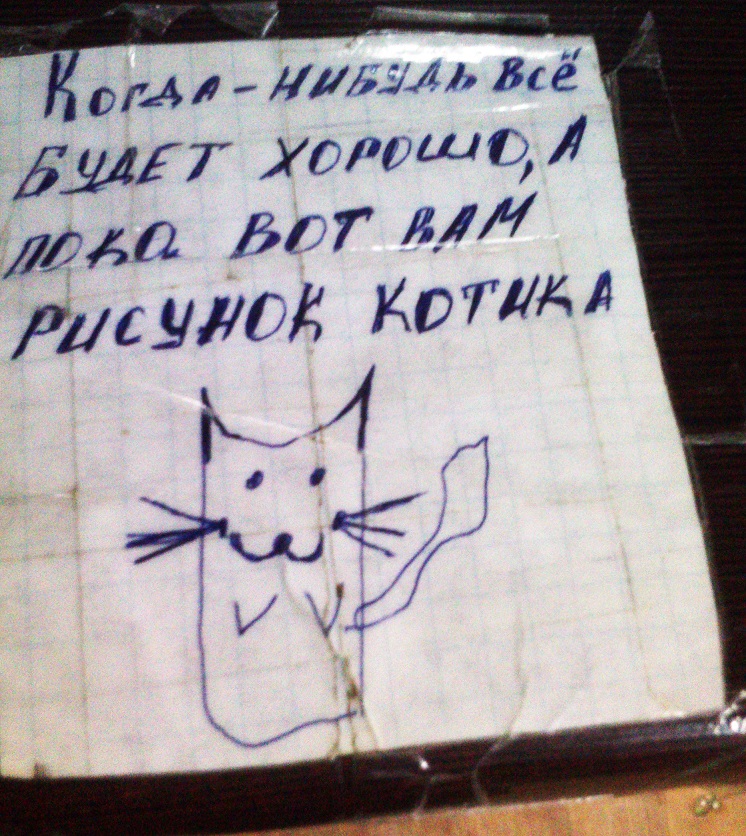 Когда-нибудь всё
будет хорошо, а
пока вот вам
рисунок котика